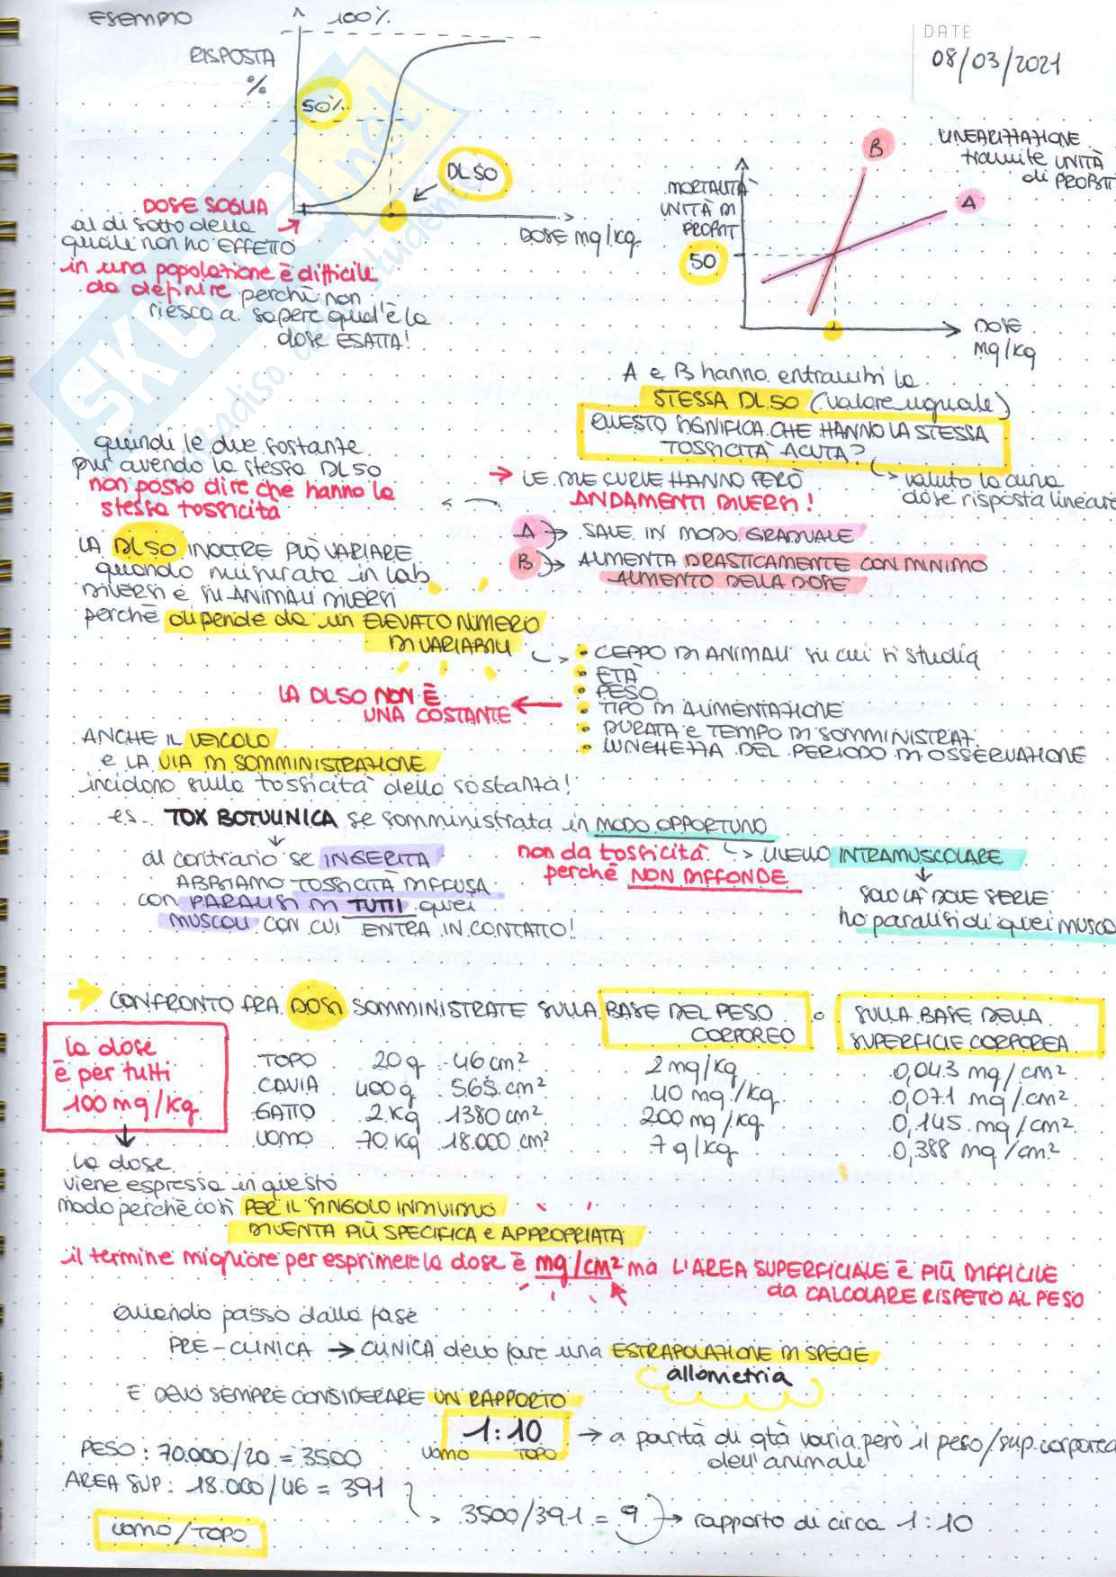 ESEMPIO
100%
RISPOSTA
%
50%
DL50
DOSE mg/kg
DATE
08/03/2021
DOSE SOGLIA
al di sotto della
quale non ho EFFETO
in una popolazione è difficile
da definire perchè non
riesco a sapere qual'è la
dose ESATTA!
LINEARIZZAZIONE
tramite UNITÀ
di PROBIT
B
A
MORTALITÀ
UNITÀ DI
PROBIT
50
DOSE
mg/kg
A e B hanno entrambi la
STESSA DL50 (valore uguale)
QUESTO SIGNIFICA CHE HANNO LA STESSA
TOSSICITÀ ACUTA?
valuto la curva
dose risposta lineare
quindi le due sostanze
pur avendo la stessa DL50
non posso dire che hanno la
stessa tossicità
→ LE DUE CURVE HANNO PERÒ
ANDAMENTI DIVERSI!
A → SALE IN MODO GRADUALE
B → AUMENTA DRASTICAMENTE CON MINIMO
AUMENTO DELLA DOSE
LA DL50 INOLTRE PUÒ VARIARE
quando misurata in lab
DIVERSI E SU ANIMALI DIVERSI
perchè dipende da un ELEVATO NUMERO
DI VARIABILI
• CEPPO DI ANIMALI su cui si studia
• ETÀ
• PESO
• TIPO DI ALIMENTAZIONE
• DURATA E TEMPO DI SOMMINISTRAZ.
• LUNGHEZZA DEL PERIODO DI OSSERVAZIONE
LA DL50 NON È
UNA COSTANTE
ANCHE IL VEICOLO
e LA VIA DI SOMMINISTRAZIONE
incidono sulla tossicità della sostanza!
es. TOX BOTULINICA se somministrata in MODO OPPORTUNO
non da tossicità
perchè NON DIFFONDE
LIVELLO INTRAMUSCOLARE
SOLO LÀ DOVE SERVE
ho paralisi di quei musco
al contrario se INGERITA
ABBIAMO TOSSICITÀ DIFFUSA
CON PARALISI DI TUTTI quei
MUSCOLI CON CUI ENTRA IN CONTATTO!
→ CONFRONTO FRA DOSI SOMMINISTRATE SULLA BASE DEL PESO
CORPOREO
o
SULLA BASE DELLA
SUPERFICIE CORPOREA
la dose
è per tutti
100 mg/kg
TOPO 20g 46 cm² 2 mg/kg 0,043 mg/cm²
CAVIA 400g 565 cm² 40 mg/kg 0,071 mg/cm²
GATTO 2Kg 1380 cm² 200 mg/kg 0,145 mg/cm²
UOMO 70 Kg 18.000 cm² 7 g/kg 0,388 mg/cm²
la dose
viene espressa in questo
modo perchè così PER IL SINGOLO INDIVIDUO
DIVENTA PIÙ SPECIFICA e APPROPRIATA
il termine migliore per esprimere la dose è mg/cm² ma L'AREA SUPERFICIALE È PIÙ DIFFICILE
da CALCOLARE RISPETTO AL PESO
Quando passo dalla fase
PRE-CLINICA → CLINICA devo fare una ESTRAPOLAZIONE DI SPECIE
allometria
E DEVO SEMPRE CONSIDERARE UN RAPPORTO
1:10
UOMO TOPO
→ a parità di qtà varia però il peso/sup. corporea
dell'animale
PESO: 70.000/20 = 3500
AREA SUP: 18.000/46 = 391
3500/391 = 9 → rapporto di circa 1:10
UOMO/TOPO